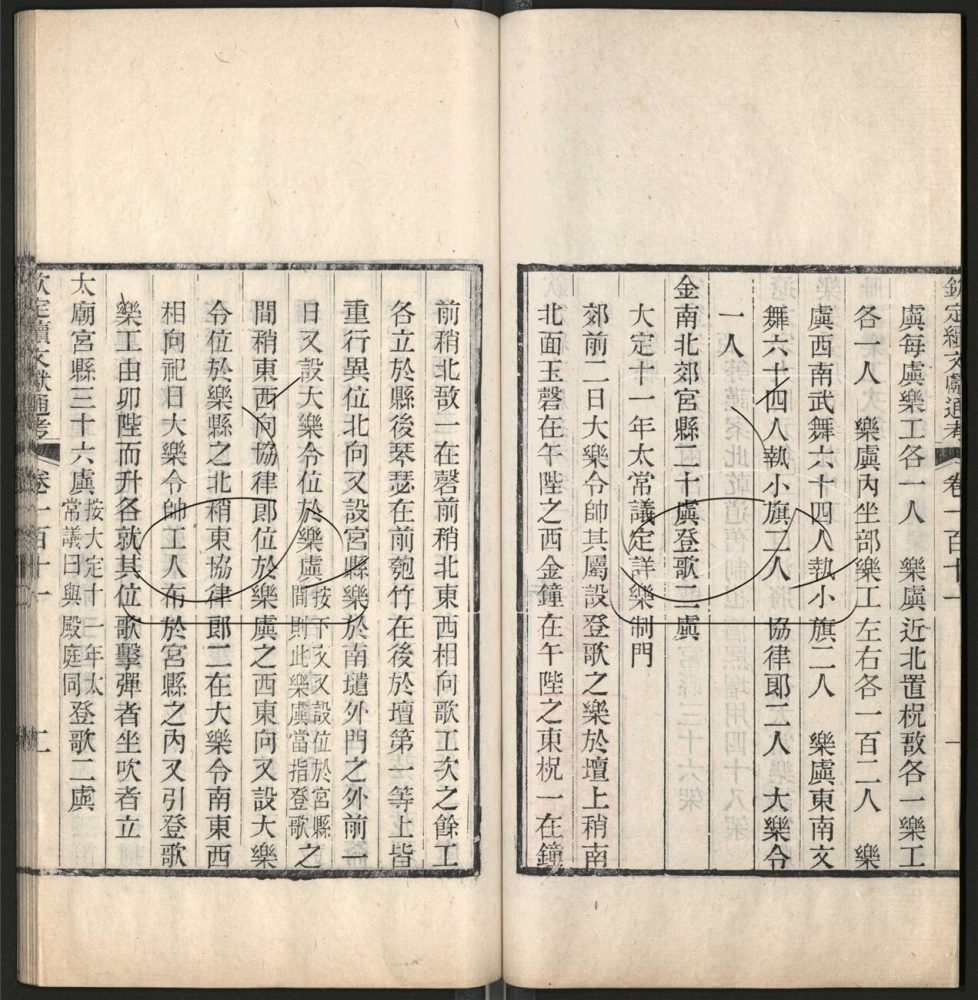 欽定續文獻通考 卷一百十一 一
虡每虡樂工各一人 樂虡近北置柷敔各一樂工
各一人 樂虡內坐部樂工左右各一百二人 樂
虡西南武舞六十四人執小旗二人 樂虡東南文
舞六十四人執小旗二人 協律郎二人 大樂令
一人
金南北郊宮縣二十虡登歌二虡
大定十一年太常議定詳樂制門
郊前二日大樂令帥其屬設登歌之樂於壇上稍南
北面玉磬在午陛之西金鐘在午陛之東柷一在鐘
前稍北敔一在磬前稍北東西相向歌工次之餘工
各立於縣後琴瑟在前匏竹在後於壇第一等上皆
重行異位北向又設宮縣樂於南壝外門之外前一
日又設大樂令位於樂虡按下文又設位於宮縣之間則此樂虡當指登歌
間稍東西向協律郎位於樂虡之西東向又設大樂
令位於樂縣之北稍東協律郎二在大樂令南東西
相向祀日大樂令帥工人布於宮縣之內又引登歌
樂工由卯陛而升各就其位歌擊彈者坐吹者立
太廟宮縣三十六虡按大定十一年太常議曰與殿庭同登歌二虡
欽定續文獻通考 卷一百十一 二